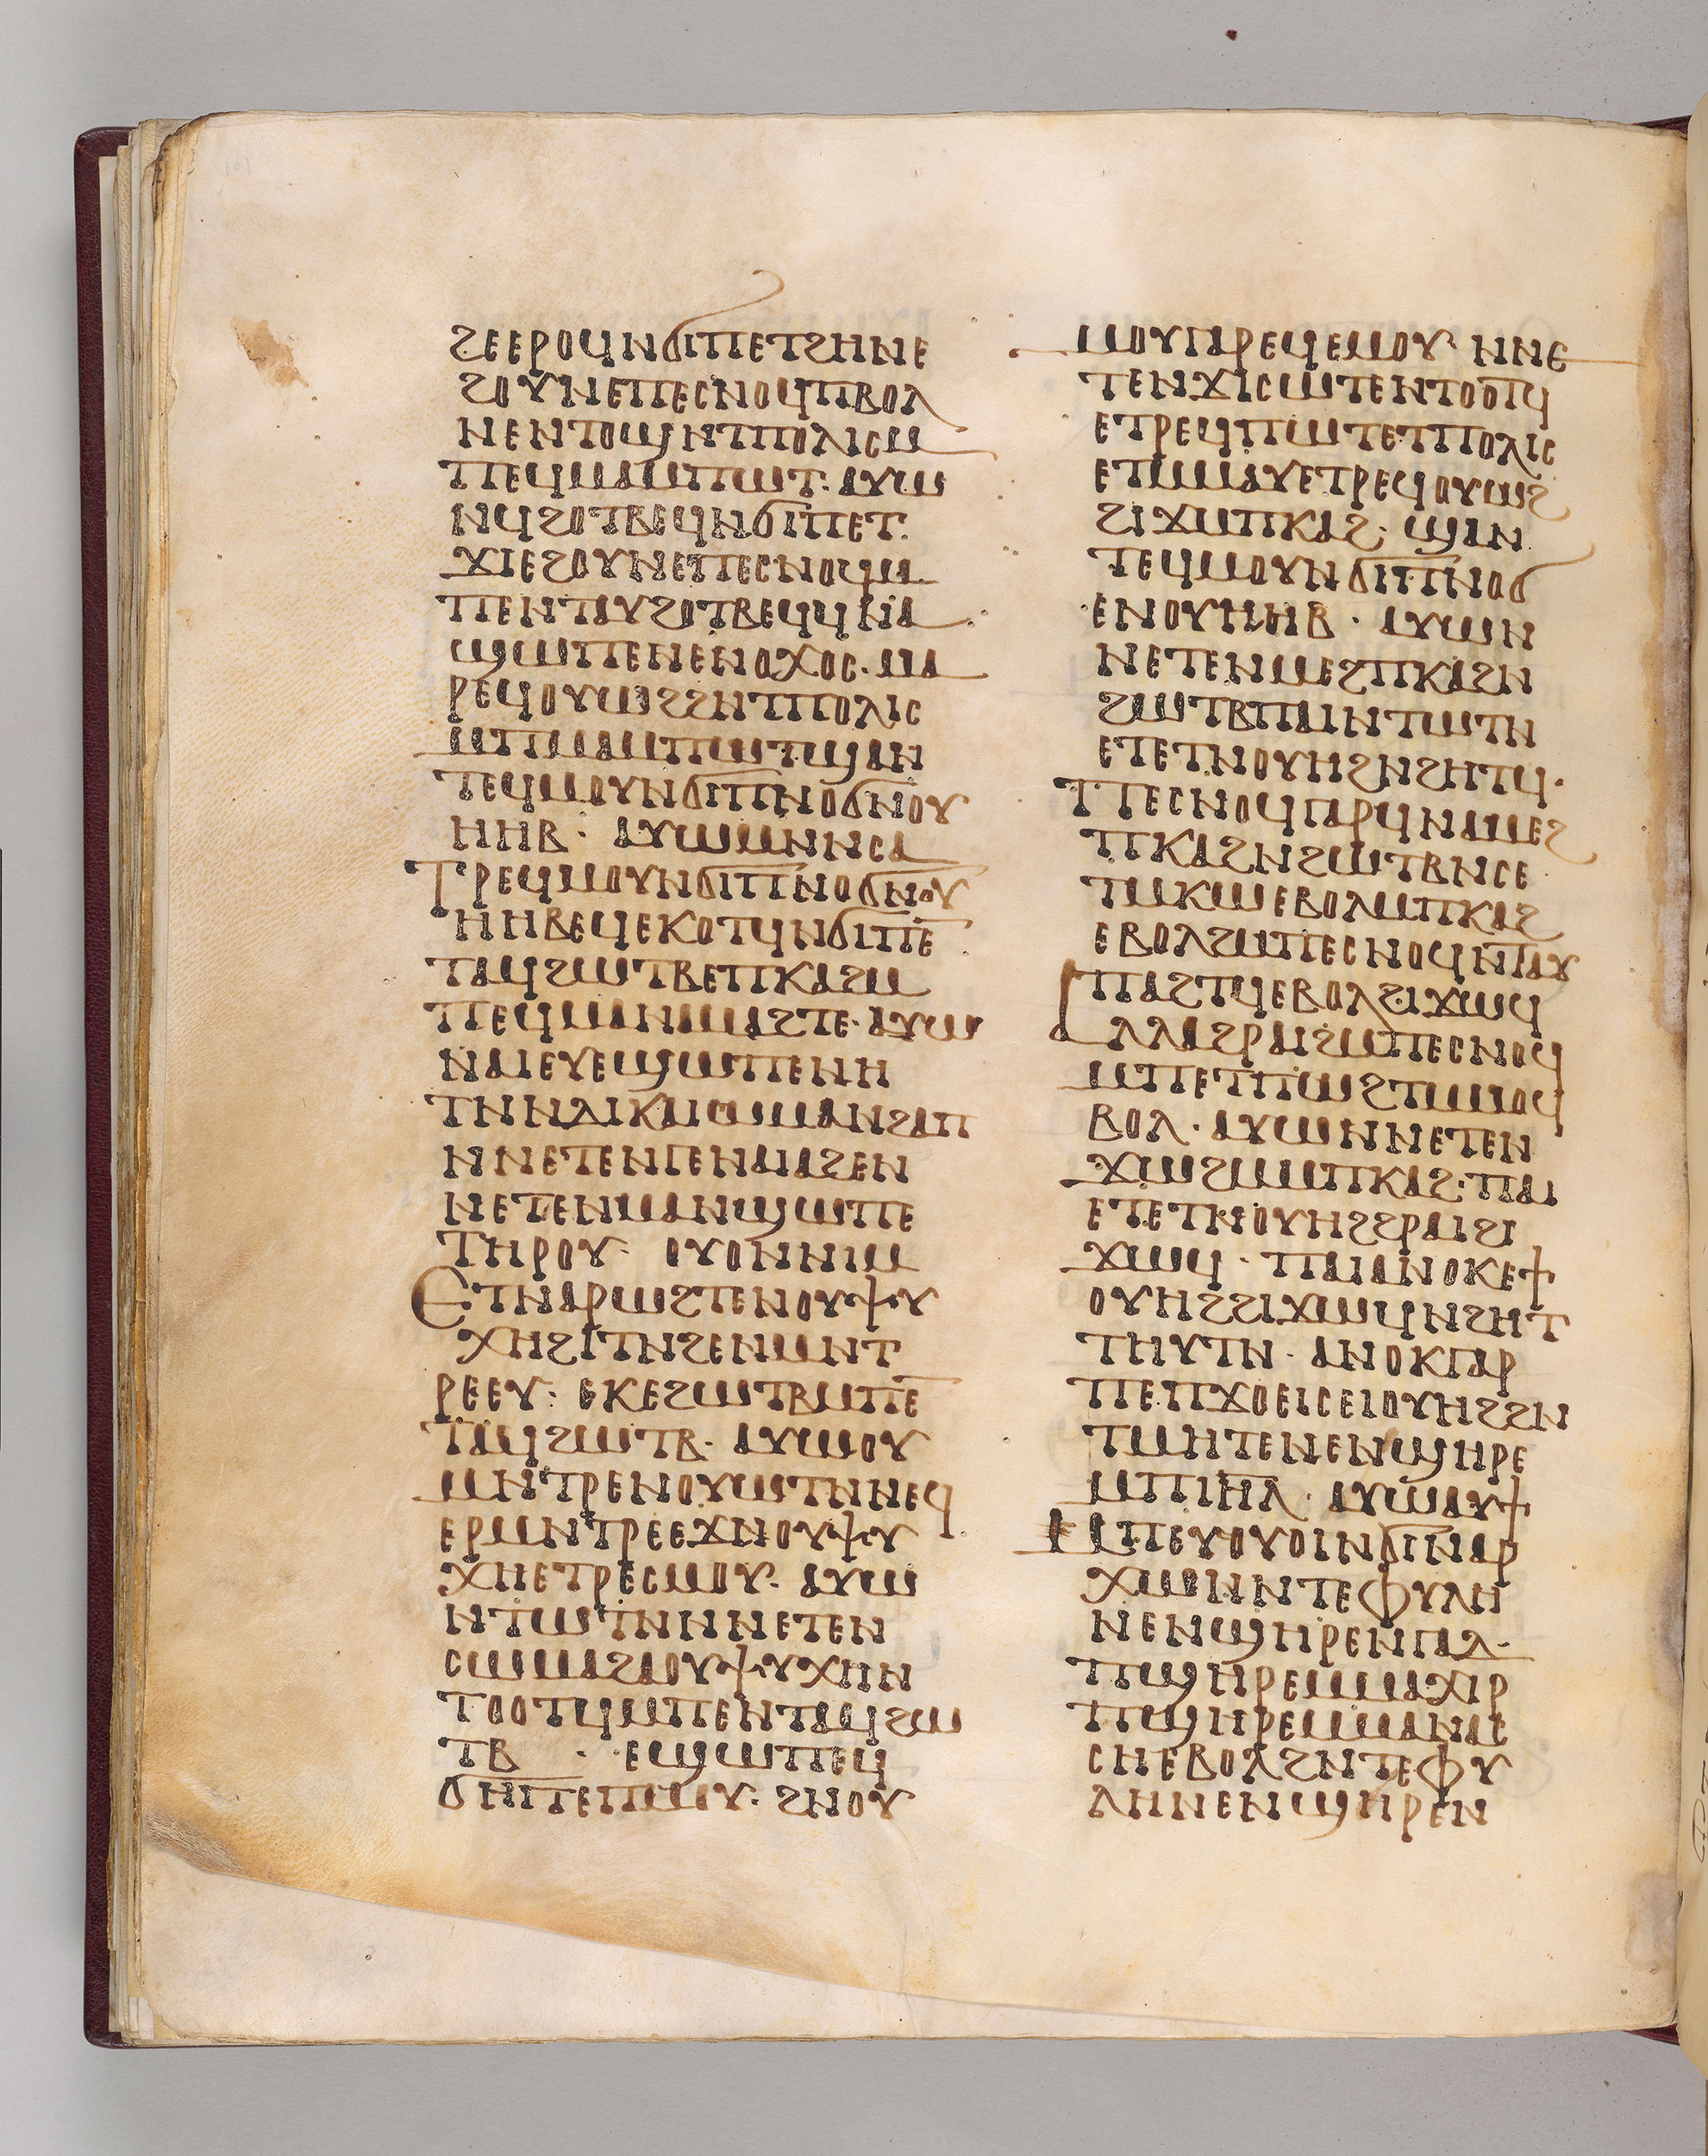 ϩⲉⲉⲣⲟϥⲛϭⲓⲡⲉⲧϩⲏⲛⲉ
ϩⲟⲩⲛⲉⲡⲉⲥⲛⲟϥⲡⲃⲟⲗ
ⲛⲉⲛⲧⲟϣⲛⲧⲡⲟⲗⲓⲥⲙ
ⲡⲉϥⲙⲁⲙⲡⲱⲧ· ⲁⲩⲱ
ⲛϥϩⲟⲧⲃⲉϥⲛϭⲓⲡⲉⲧ·
ϫⲓⲉϩⲟⲩⲛⲉⲡⲉⲥⲛⲟϥⲙ
ⲡⲉⲛⲧⲁⲩϩⲟⲧⲃⲉϥϥⲛⲁ
ϣⲱⲡⲉⲛⲉⲛⲟⲭⲟⲥ· ⲙⲁ
ⲣⲉϥⲟⲩⲱϩϩⲛⲧⲡⲟⲗⲓⲥ
ⲙⲡⲙⲁⲙⲡⲱⲧϣⲁⲛ
ⲧⲉϥⲙⲟⲩⲛϭⲓⲡⲛⲟϭⲛⲟⲩ
ⲏⲏⲃ· ⲁⲩⲱⲙⲛⲛⲥⲁ
ⲧⲣⲉϥⲙⲟⲩⲛϭⲓⲡⲛⲟϭⲛⲟⲩ
ⲏⲏⲃⲉϥⲉⲕⲟⲧϥⲛϭⲓⲡⲉ
ⲧⲁϥϩⲱⲧⲃⲉⲡⲕⲁϩⲙ
ⲡⲉϥⲙⲁⲛⲁⲙⲁϩⲧⲉ· ⲁⲩⲱ
ⲛⲁⲓⲉⲩⲉϣⲱⲡⲉⲛⲏ
ⲧⲛⲛⲇⲓⲕⲁⲓⲱⲙⲁⲛϩⲁⲡ
ⲛⲛⲉⲧⲉⲛⲅⲉⲛⲁⲙⲁϩⲉⲛ
ⲛⲉⲧⲉⲛⲙⲁⲛϣⲱⲡⲉ
ⲧⲏⲣⲟⲩ· ⲟⲩⲟⲛⲛⲓⲙ
ⲉⲧⲛⲁⲣⲱϩⲧⲉⲛⲟⲩⲯⲩ
ⲭⲏϩⲓⲧⲛϩⲉⲛⲙⲛⲧ
ⲣⲉⲉⲩ· ⲉⲕⲉϩⲱⲧⲃⲙⲡⲉ
ⲧⲁϥϩⲱⲧⲃ· ⲁⲩⲱⲟⲩ
ⲙⲛⲧⲣⲉⲛⲟⲩⲱⲧⲛⲛⲉϥ
ⲉⲣⲙⲛⲧⲣⲉⲉϫⲛⲟⲩⲯⲩ
ⲭⲏⲉⲧⲣⲉⲥⲙⲟⲩ· ⲁⲩⲱ
ⲛⲧⲱⲧⲛⲛⲛⲉⲧⲉⲛ
ⲥⲱⲙⲁϩⲁⲟⲩⲯⲩⲭⲏⲛ
ⲧⲟⲟⲧϥⲙⲡⲉⲛⲧⲁϥϩⲱ
ⲧⲃ · ⲉϣⲱⲡⲉϥ
ϭⲏⲡⲉⲡⲙⲟⲩ· ϩⲛⲟⲩ
ⲙⲟⲩⲅⲁⲣⲉϥⲉⲙⲟⲩ· ⲛⲛⲉ
ⲧⲉⲛϫⲓⲥⲱⲧⲉⲛⲧⲟⲟⲧϥ
ⲉⲧⲣⲉϥⲡⲱⲧⲉⲧⲡⲟⲗⲓⲥ
ⲉⲧⲙⲙⲁⲩⲉⲧⲣⲉϥⲟⲩⲱϩ
ϩⲓϫⲙⲡⲕⲁϩ· ϣⲁⲛ
ⲧⲉϥⲙⲟⲩⲛϭⲓⲡⲛⲟϭ
ⲉⲛⲟⲩⲏⲏⲃ· ⲁⲩⲱⲛ
ⲛⲉⲧⲉⲛⲙⲉϩⲡⲕⲁϩⲛ
ϩⲱⲧⲃⲡⲁⲓⲛⲧⲱⲧⲛ
ⲉⲧⲉⲧⲛⲟⲩⲏϩⲛϩⲏⲧϥ·
ⲡⲉⲥⲛⲟϥⲅⲁⲣϥⲛⲁⲙⲉϩ
ⲡⲕⲁϩⲛϩⲱⲧⲃⲛⲥⲉ
ⲧⲙⲕⲱⲉⲃⲟⲗⲙⲡⲕⲁϩ
ⲉⲃⲟⲗϩⲙⲡⲉⲥⲛⲟϥⲛⲧⲁⲩ
ⲡⲁϩⲧϥⲉⲃⲟⲗϩⲓϫⲱϥ
ⲁⲗⲗⲁϩⲣⲁⲓϩⲙⲡⲉⲥⲛⲟϥ
ⲙⲡⲉⲧⲡⲱϩⲧⲙⲙⲟϥ
ⲃⲟⲗ· ⲁⲩⲱⲛⲛⲉⲧⲉⲛ
ϫⲱϩⲙⲙⲡⲕⲁϩ· ⲡⲁⲓ
ⲉⲧⲉⲧⲛⲟⲩⲏϩϩⲣⲁⲓϩⲓ
ϫⲱϥ· ⲡⲁⲓⲁⲛⲟⲕⲉϯ
ⲟⲩⲏϩϩⲓϫⲱϥⲛϩⲏⲧ
ⲧⲏⲩⲧⲛ· ⲁⲛⲟⲕⲅⲁⲣ
ⲡⲉⲡϫⲟⲉⲓⲥⲉⲓⲟⲩⲏϩϩⲛ
ⲧⲙⲏⲧⲉⲛⲉⲛϣⲏⲣⲉ
ⲙⲡⲓⲏⲗ· ⲁⲩⲱⲁⲩϯ
ⲙⲡⲉⲩⲟⲩⲟⲓⲛϭⲓⲛⲁⲣ
ⲭⲱⲛⲛⲧⲉⲫⲩⲗⲏ
ⲛⲉⲛϣⲏⲣⲉⲛⲅⲁⲗ·
ⲡϣⲏⲣⲉⲙⲙⲁⲭⲓⲣ
ⲡϣⲏⲣⲉⲙⲙⲁⲛⲁⲥ
ⲥⲏⲉⲃⲟⲗϩⲛⲧⲉⲫⲩ
ⲗⲏⲛⲉⲛϣⲏⲣⲉⲛ